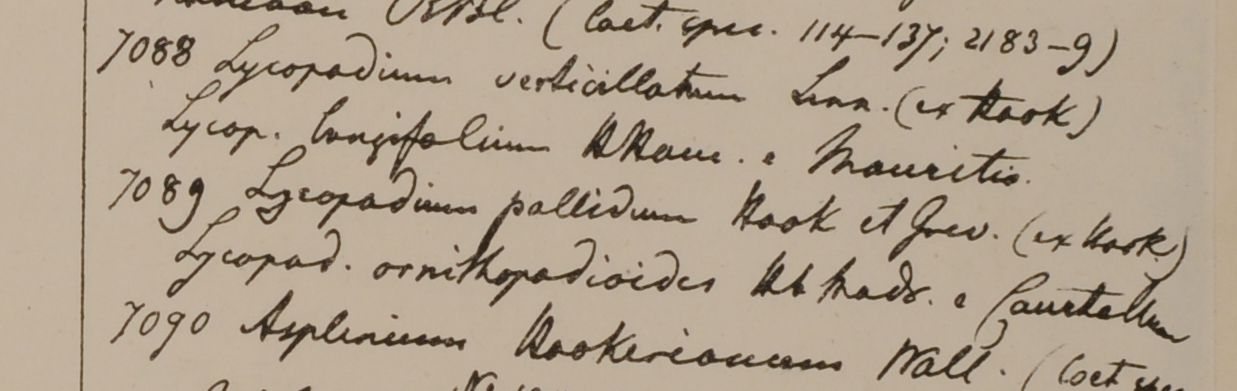 (Coet. spec. 114–137; 2183–9)
7088 Lycopodium verticillatum Linn. (ex Hook)
Lycop. longifolium HHam. e Mauritio.
7089 Lycopodium pallidum Hook et Grev. (ex Hook.)
Lycopod. ornithopodioides Hb Madr. e Courtallum
7090 Asplenium Hookerianum Wall. (Coet spec